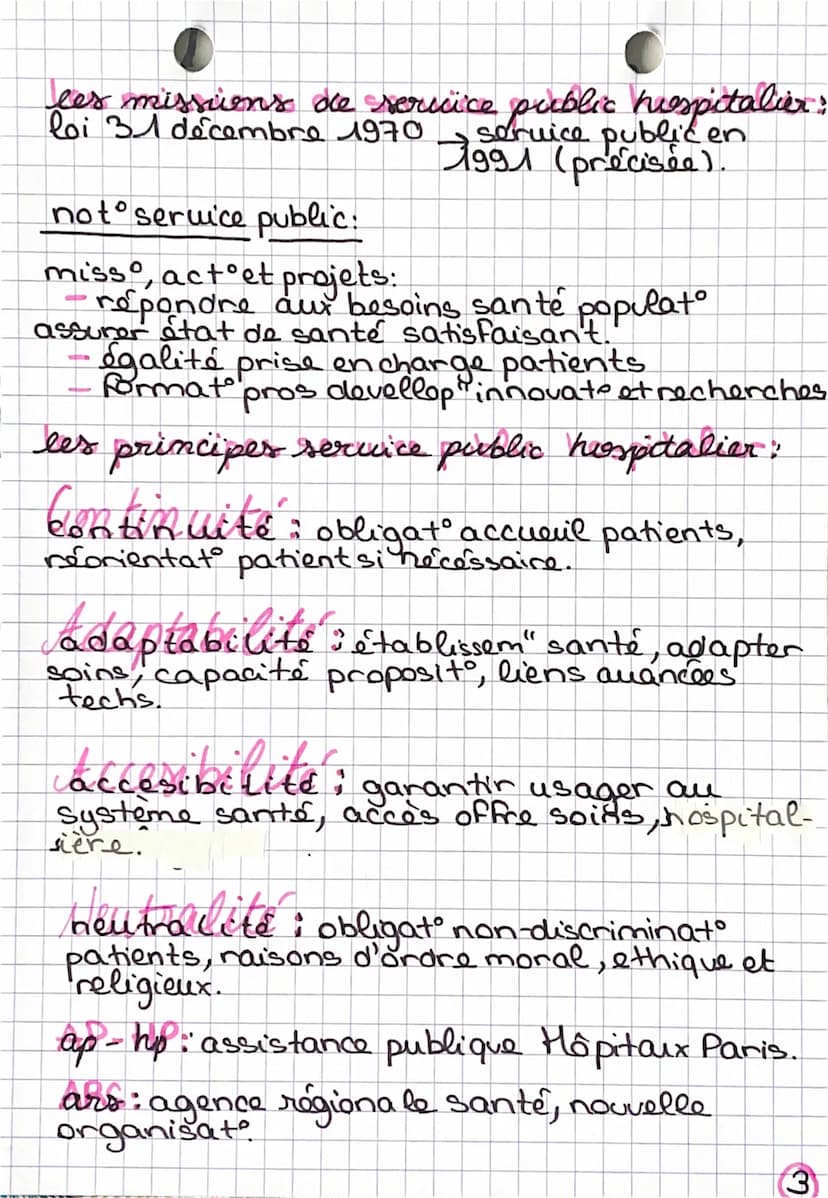 les missions de service public hospitalier :
loi 31 décembre 1970 → service public en
1991 (précisée).
not° service public :
miss°, act° et projets :
- répondre aux besoins santé populat°
assurer état de santé satisfaisant.
- égalité prise en charge patients
- format° pros devellop" innovat° et recherches
les principes service public hospitalier :
Continuité : obligat° accueuil patients,
réorientat° patient si nécéssaire.
Adaptabilité : établissem" santé, adapter
soins, capacité proposit°, liens avancées
techs.
Accesibilité : garantir usager au
système santé, accès offre soins, hospital-
ière.
Neutralité : obligat° non-discriminat°
patients, raisons d'ordre moral, ethique et
religieux.
ap-hp : assistance publique Hôpitaux Paris.
ars : agence régionale santé, nouvelle
organisat°.
3